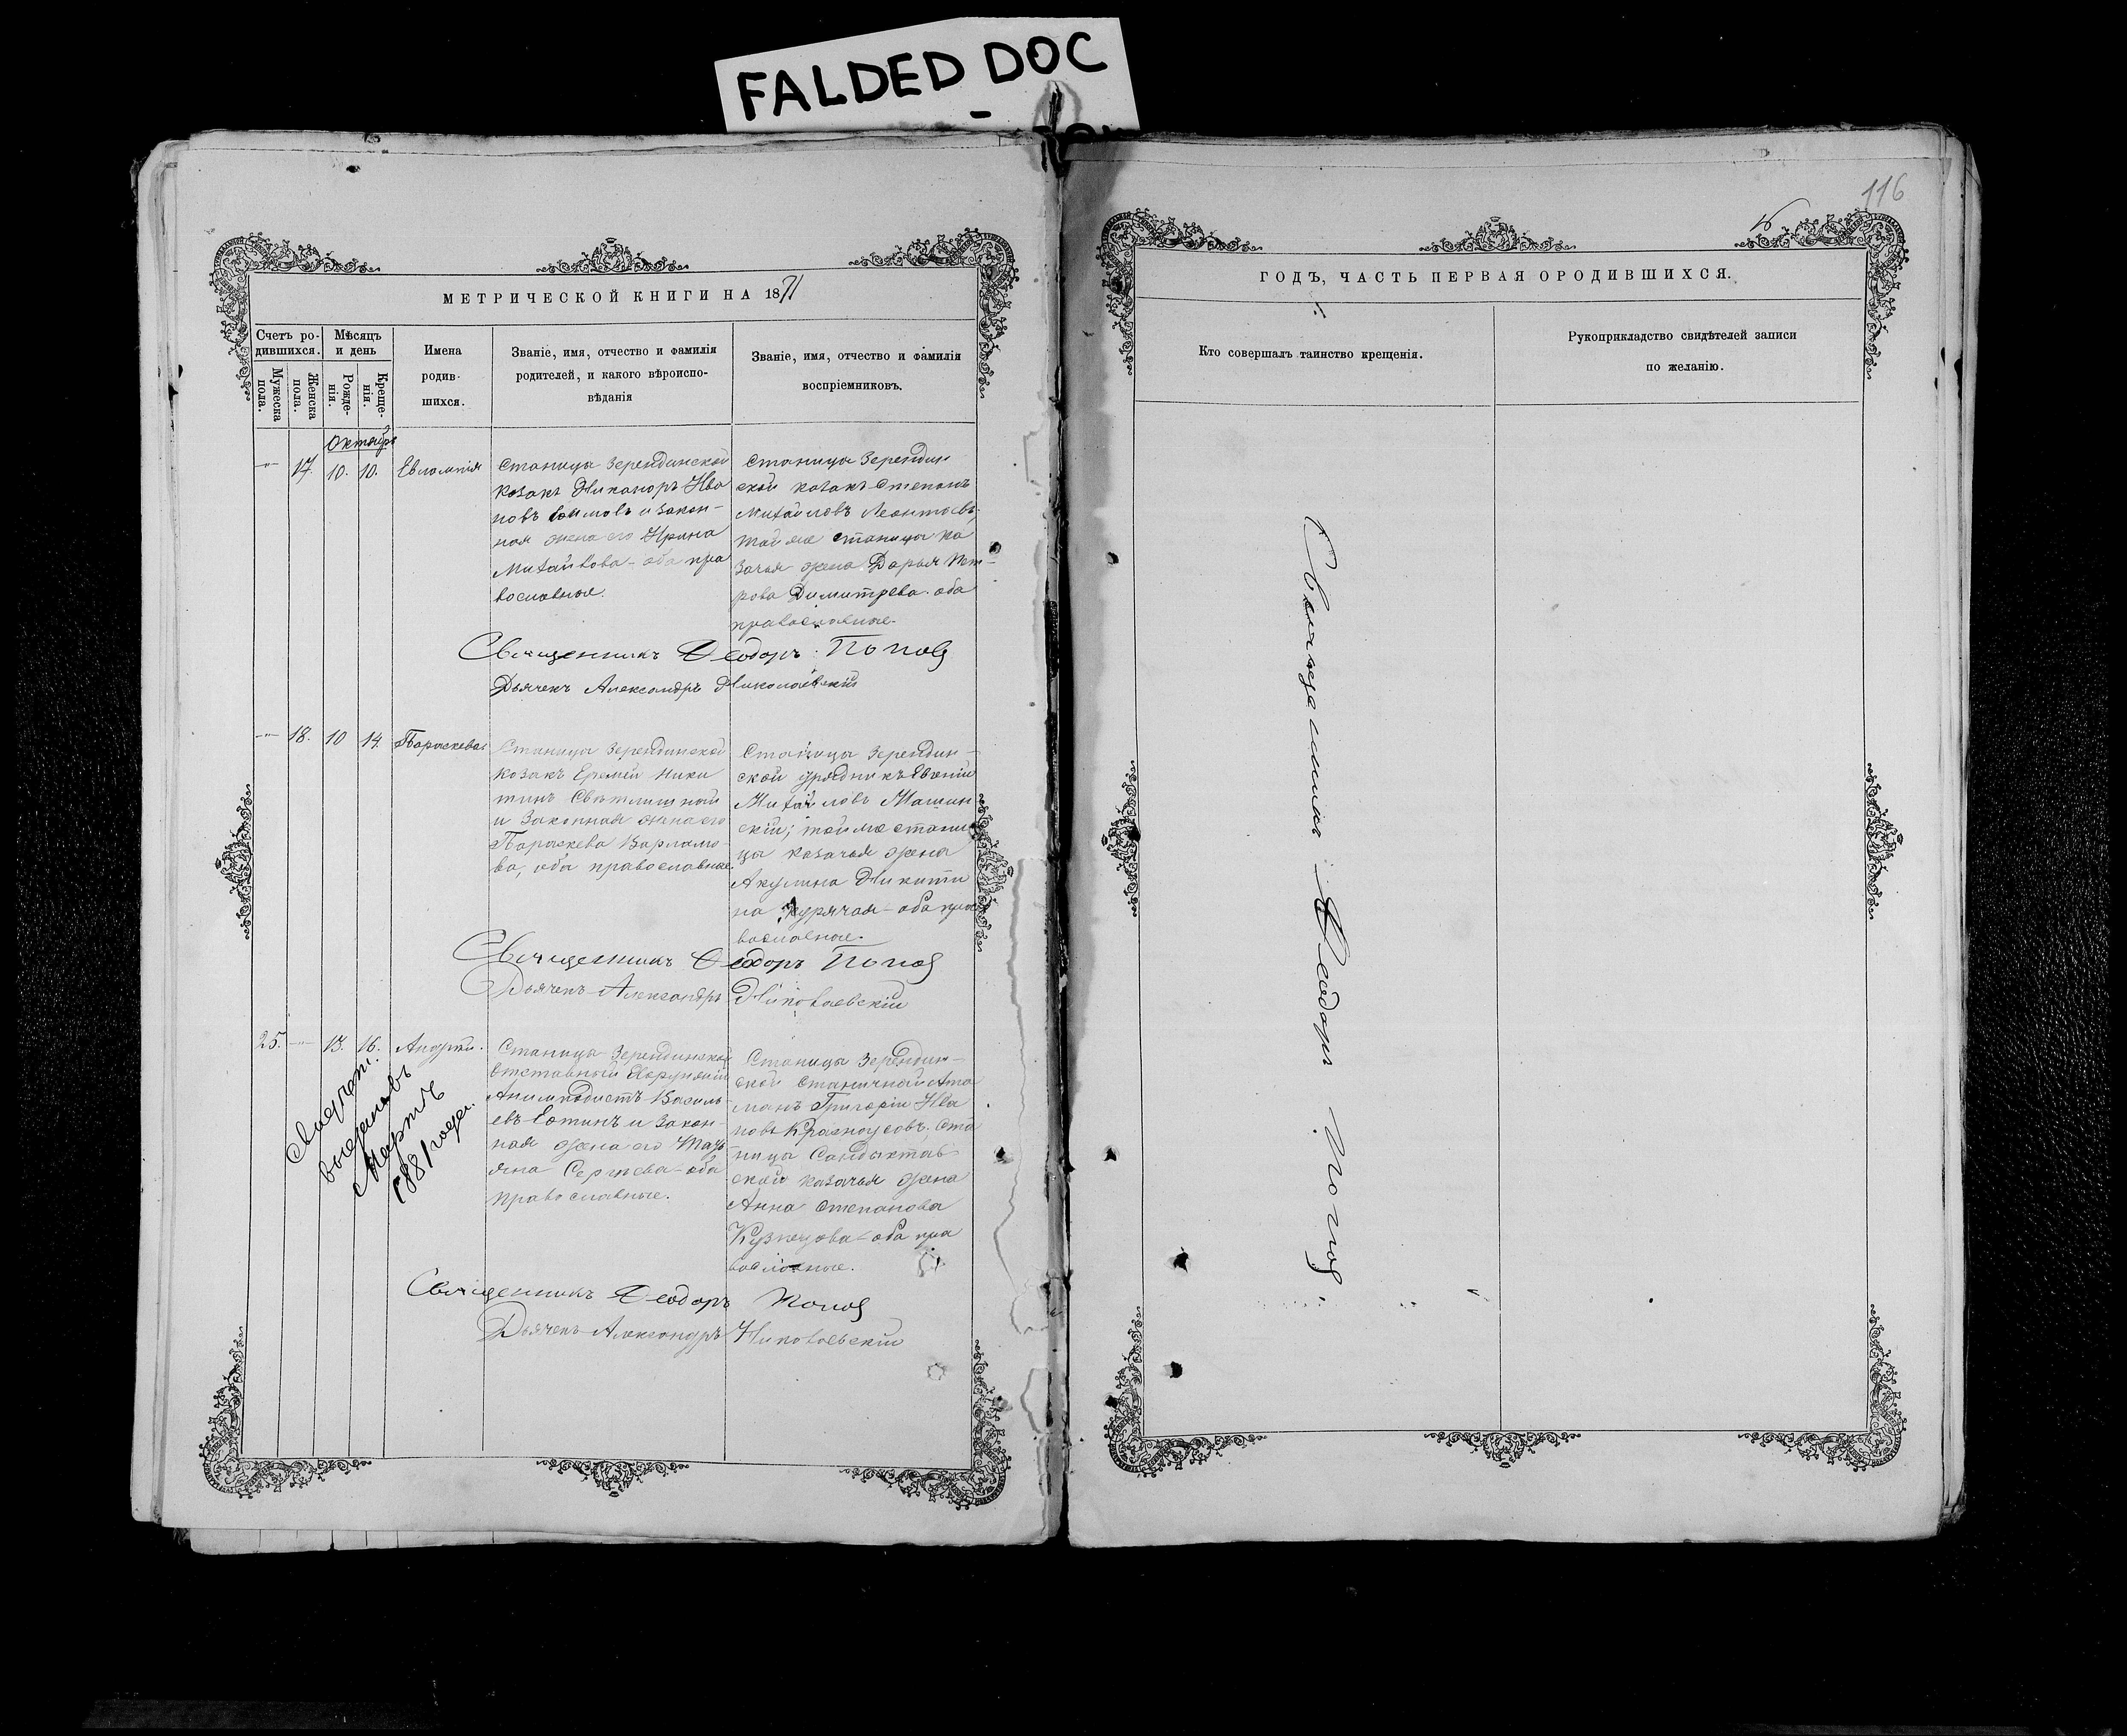 FALDED DOC
116
МЕТРИЧЕСКОЙ КНИГИ НА 1871
Счетъ ро-
дившихся.
Мужеска
пола.
Женска
пола.
Мѣсяцъ
и день
Рожде-
нія.
Креще-
нія.
Имена
родив-
шихся.
Званіе, имя, отчество и фамилія
родителей, и какого вѣроиспо-
вѣданія
Званіе, имя, отчество и фамилія
воспріемниковъ.
Октябрь
17. 10. 10. Евлампія
Станицы Зерендинской
козакъ Никаноръ Ива
новъ и закон-
ная жена его Ирина
Михайлова - оба пра
вославные.
Станицы Зерендин
ской козакъ Степанъ
Михайловъ Леонтьевъ,
той же станицы ка
зачья жена Дарья Пет-
рова Димитрева. оба
православные.
Священникъ Ѳеодоръ Поповъ
Дьячекъ Александръ Николаевскій
18. 10 14. Параскева
Станицы Зерендинской
козакъ Еремей Ники
тинъ Свѣтличной
и законная жена его
Параскева Варламо-
ва, оба православные
Станицы Зерендин-
ской урядникъ Евгеній
Михайловъ Машин
скій; той же стани
цы казачья жена
Акулина Никити
на Курячая - оба пра
вославные.
Священникъ Ѳеодоръ Поповъ
Дьячекъ Александръ Николаевскій
25. 13. 16. Андрей.
Станицы Зерендинской
отставный Хорунжій
Анемподистъ Василь-
евъ Еотинъ и закон-
ная жена его Тать
яна Сергѣева - оба
православные.
Станицы Зерендин-
ской станичный Ата
манъ Григорій Ива
новъ Красноусовъ; ста
ницы Сандыктав
ской казачья жена
Анна Степанова
Кузнецова - оба пра
вославные.
выданъ
Мартъ
1881 года.
Священникъ Ѳеодоръ Поповъ
Дьячекъ Александръ Николаевскій
ГОДЪ, ЧАСТЬ ПЕРВАЯ О РОДИВШИХСЯ.
Кто совершалъ таинство крещенія.
Рукоприкладство свидѣтелей записи
по желанію.
Священникъ Ѳеодоръ Поповъ